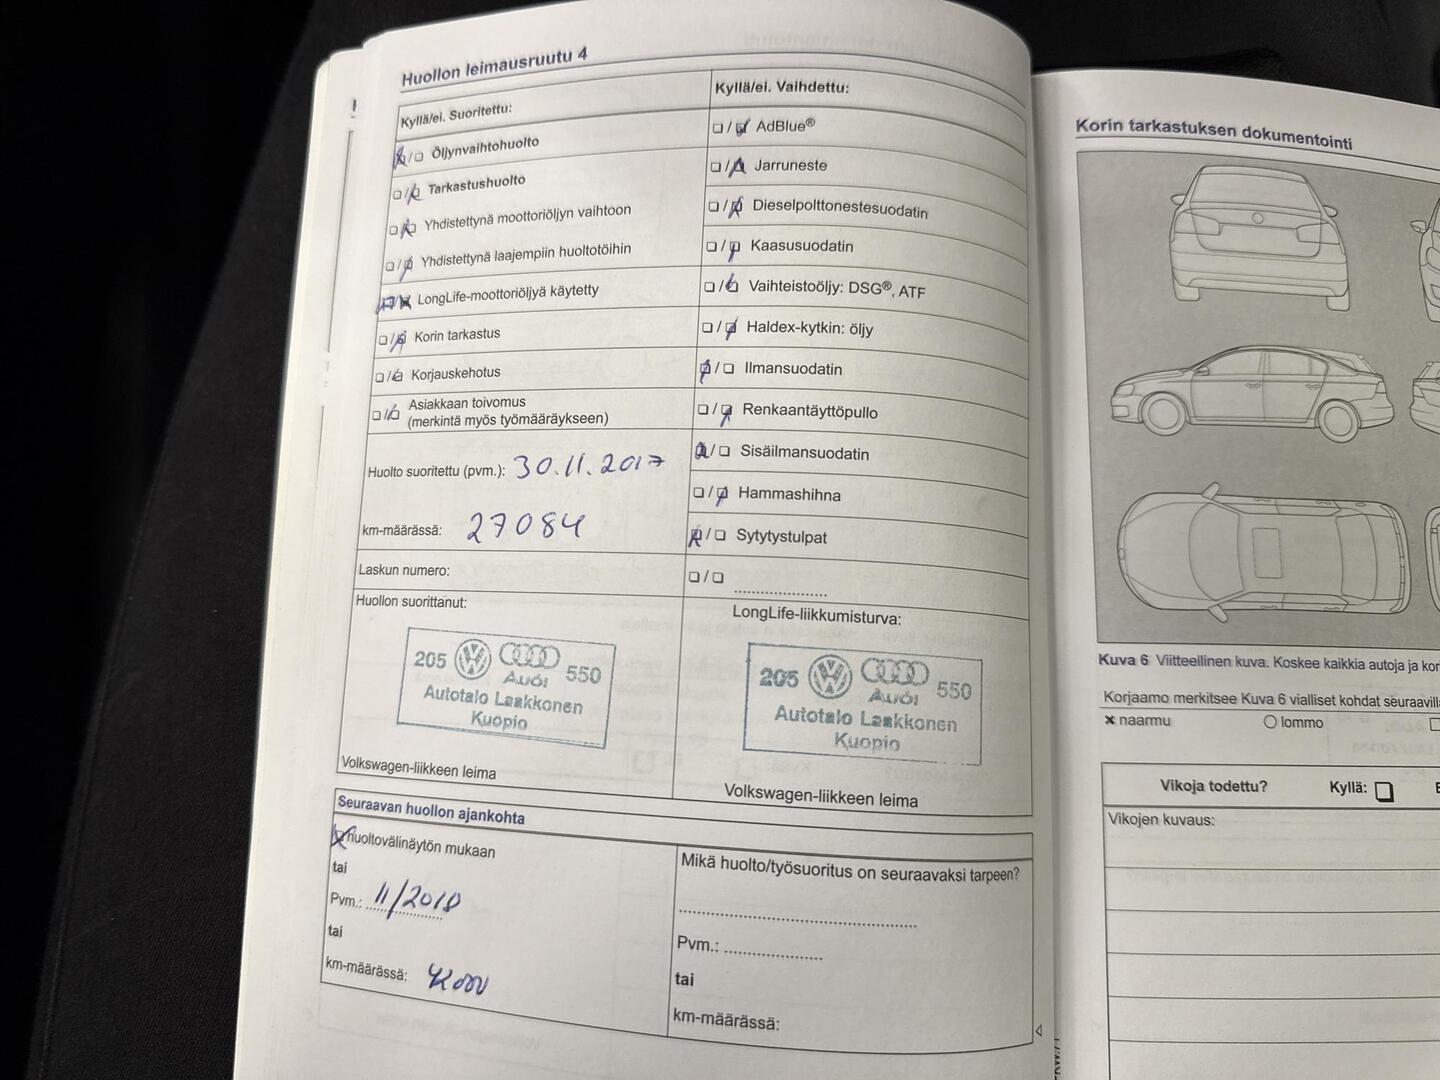 Huollon leimausruutu 4
Kyllä/ei. Suoritettu:
Öljynvaihtohuolto
Tarkastushuolto
Yhdistettynä moottoriöljyn vaihtoon
Yhdistettynä laajempiin huoltotöihin
LongLife-moottoriöljyä käytetty
Korin tarkastus
Korjauskehotus
Asiakkaan toivomus
(merkintä myös työmääräykseen)
Huolto suoritettu (pvm.): 30.11.2017
km-määrässä: 27084
Laskun numero:
Huollon suorittanut:
205 550
Audi
Autotalo Laakkonen
Kuopio
Volkswagen-liikkeen leima
Kyllä/ei. Vaihdettu:
AdBlue®
Jarruneste
Dieselpolttonestesuodatin
Kaasusuodatin
Vaihteistoöljy: DSG®, ATF
Haldex-kytkin: öljy
Ilmansuodatin
Renkaantäyttöpullo
Sisäilmansuodatin
Hammashihna
Sytytystulpat
LongLife-liikkumisturva:
205 550
Audi
Autotalo Laakkonen
Kuopio
Volkswagen-liikkeen leima
Seuraavan huollon ajankohta
huoltovälinäytön mukaan
tai
Pvm.: 11/2018
tai
km-määrässä:
Mikä huolto/työsuoritus on seuraavaksi tarpeen?
Pvm.:
tai
km-määrässä:
Korin tarkastuksen dokumentointi
Kuva 6 Viitteellinen kuva. Koskee kaikkia autoja ja
Korjaamo merkitsee Kuva 6 vialliset kohdat
naarmu lommo
Vikoja todettu? Kyllä:
Vikojen kuvaus: